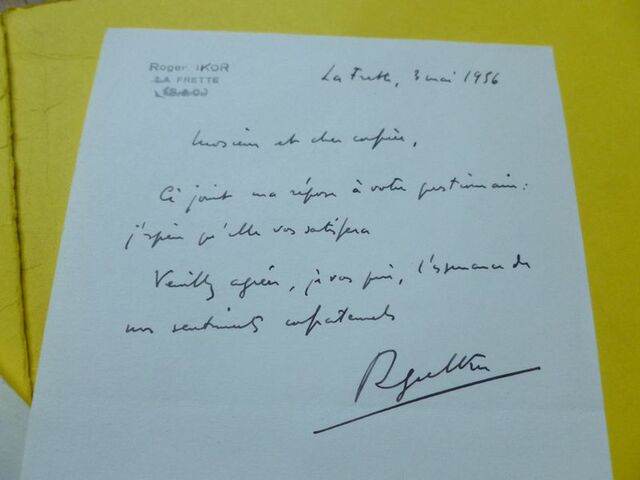 Roger IKOR
LA FRETTE
(S.-&-O.)
La Frette, 3 mai 1956
Monsieur et cher confrère,
Ci joint ma réponse à votre questionnaire :
j'espère qu'elle vous satisfera
Veuillez agréer, je vous prie, l'assurance de
mes sentiments confraternels